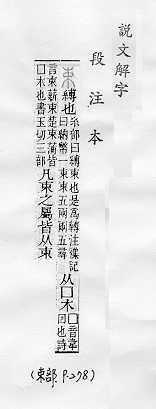 說文解字
段注本
束 縛也糸部曰縛束也是爲轉注襍記曰納幣一束束五兩兩五尋从囗木囗音韋回也詩
言束薪束楚束蒲皆囗木也書玉切三部凡束之屬皆从束
(束部 P.278)